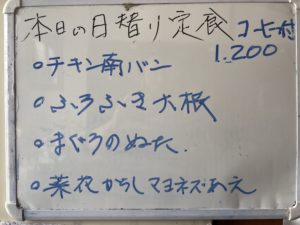 本日の日替り定食 コーヒー付
1.200
○チキン南バン
○ふろふき大根
○まぐろのぬた
○菜花からしマヨネーズあえ